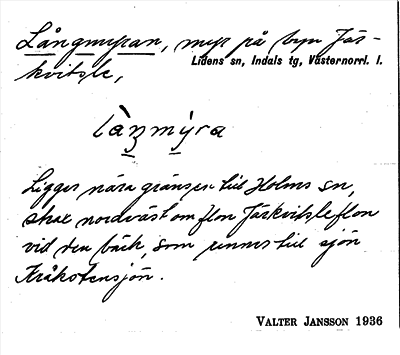 Långmyran, myr på byn Järkvitsle,
Lidens sn, Indals tg, Västernorrl. l.
làŋmýra
Ligger nära gränsen till Holms sn,
strax nordväst om flon Järkvitsleflon
vid den bäck, som rinner till sjön
Kråkotensjön.
VALTER JANSSON 1936